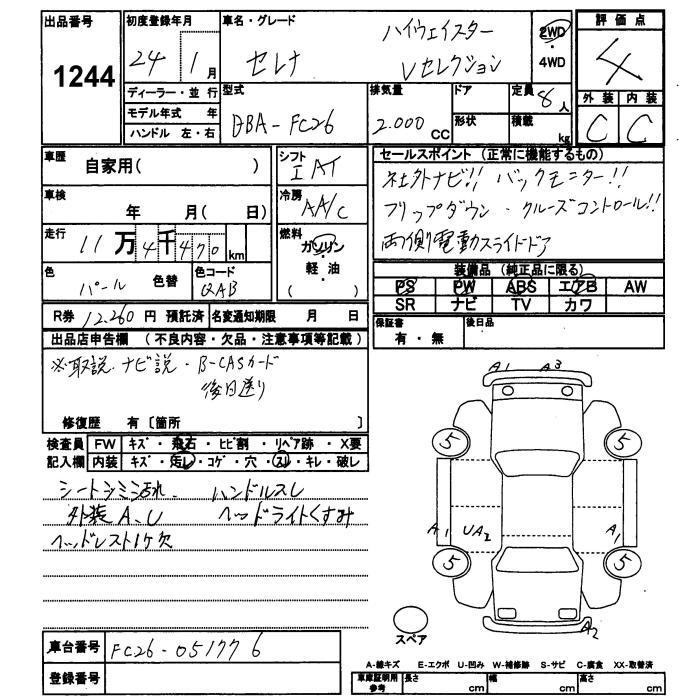 出品番号
1244
初度登録年月
24年 1月
車名・グレード
セレナ
ハイウェイスター
Vセレクション
2WD
4WD
評価点
4
外装 内装
C C
ディーラー・並行
モデル年式 年
ハンドル 左・右
型式
DBA-FC26
排気量
2.000 CC
ドア
形状
定員 8人
積載 kg
車歴
自家用( )
シフト
IAT
セールスポイント (正常に機能するもの)
社外ナビ!! バックモニター!!
フリップダウン・クルーズコントロール!!
両側電動スライドドア
車検
年 月( 日)
冷房
AA/C
走行
11万4千470km
燃料
ガソリン
軽・油
( )
色
パール 色替
色コード
QAB
装備品 (純正品に限る)
PS PW ABS エアB AW
SR ナビ TV カワ
R券 12.260円 預託済 名変通知期限 月 日
保証書
有・無
後日品
出品店申告欄 (不良内容・欠品・注意事項等記載)
※取説・ナビ説・B-CASカード
後日送り
修復歴 有〔箇所 〕
検査員 FW キズ・飛石・ヒビ割・リペア跡・X要
記入欄 内装 キズ・汚レ・コゲ・穴・スレ・キレ・破レ
シートシミ汚れ、ハンドルスレ
外装A、U ヘッドライトくすみ
ヘッドレスト1ケ欠
A1 A3
5 5
A1 UA2 A1
5 5
A2
スペア
車台番号 FC26-051776
登録番号
A-線キズ E-エクボ U-凹み W-補修跡 S-サビ C-腐食 XX-取替済
車庫証明用参考 長さ cm 幅 cm 高さ cm